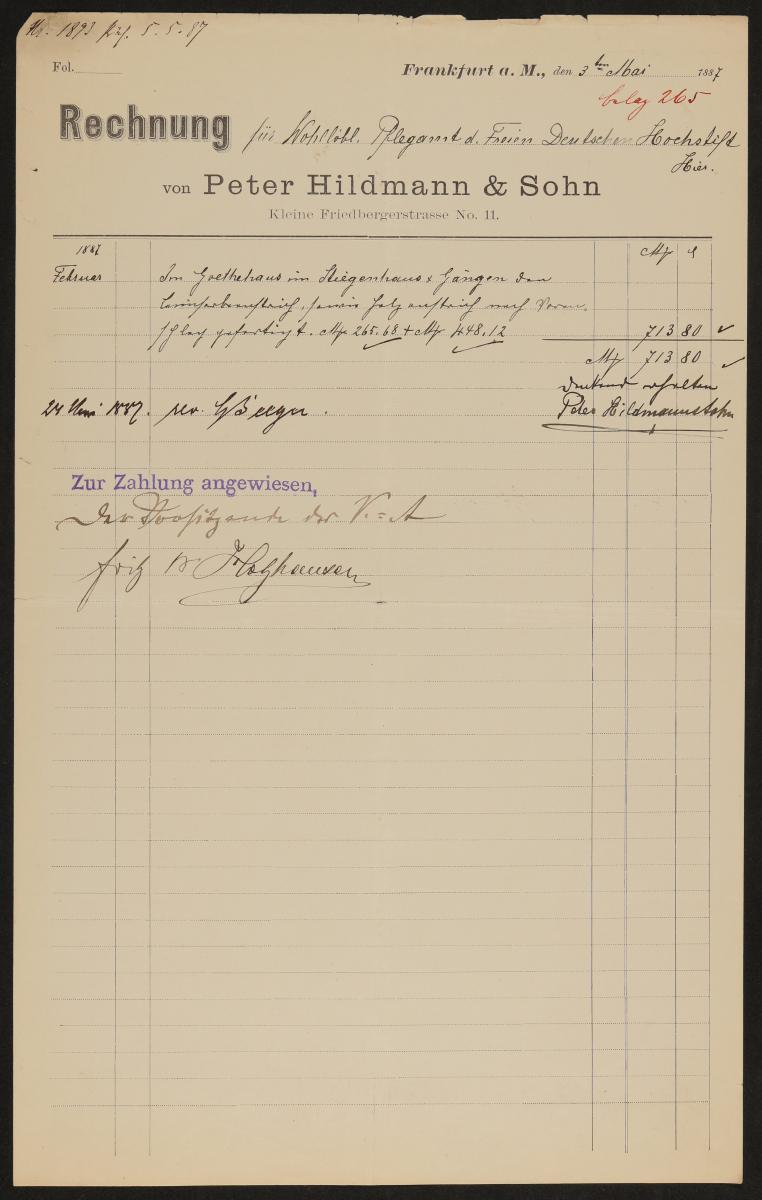 No: 1893 pz. 5.5.87
Fol.
Frankfurt a. M., den 3ten Mai 1887
beleg 265
Rechnung für Wohllöbl. Pflegamt d. Freien Deutschen Hochstift
Hier.
von Peter Hildmann & Sohn
Kleine Friedbergerstrasse No. 11.
1887 M ₰
Februar Im Goethehaus im Stiegenhaus & Gängen den
Leimfarbenstrich, sowie Holzanstrich nach Voran-
schlag gefertigt. M 265.68 + M 448.12 713 80
M 713 80
dankend erhalten
24 Mai 1887. rev. Peter Hildmann & Sohn
Zur Zahlung angewiesen,
Der Vorsitzende der V.=A
Fritz Holzhausen